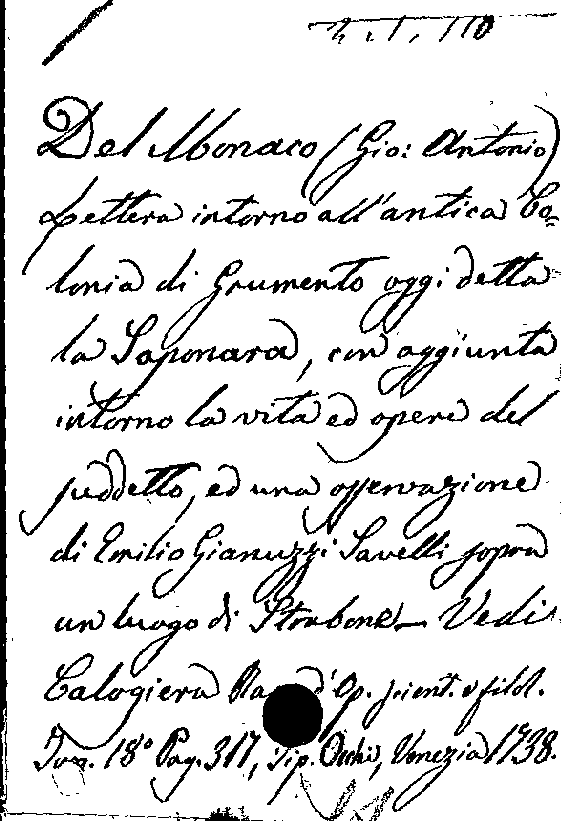 Del Monaco (Gio: Antonio)
Lettera intorno all'antica Co=
lonia di Grumento oggi detta
la Saponara, con aggiunta
intorno la vita ed opere del
suddetto, ed una osservazione
di Emilio Gianuzzi Savelli sopra
un luogo di Strabone – Vedi
Calogiera d'Op. scient. e filol.
Tom. 18° Pag. 317, Tip. Occhi, Venezia 1738.